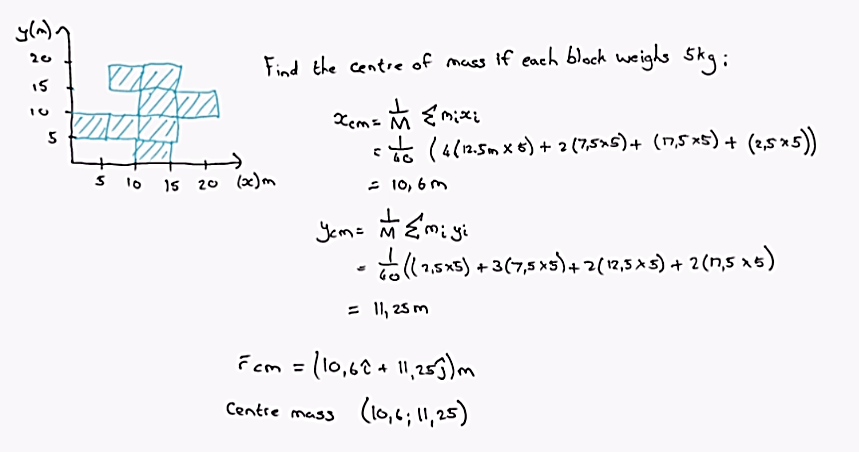 y(m)
20
15
10
5
5 10 15 20 (x)m
Find the centre of mass if each block weighs 5kg:
xcm = 1/M Σmixi
= 1/40 (4(12.5m × 5) + 2(7,5×5) + (17,5×5) + (2,5×5))
= 10,6m
ycm = 1/M Σmiyi
= 1/40 ((2,5×5) + 3(7,5×5) + 2(12,5×5) + 2(17,5×5)
= 11,25m
r̄cm = (10,6î + 11,25ĵ)m
Centre mass (10,6; 11,25)